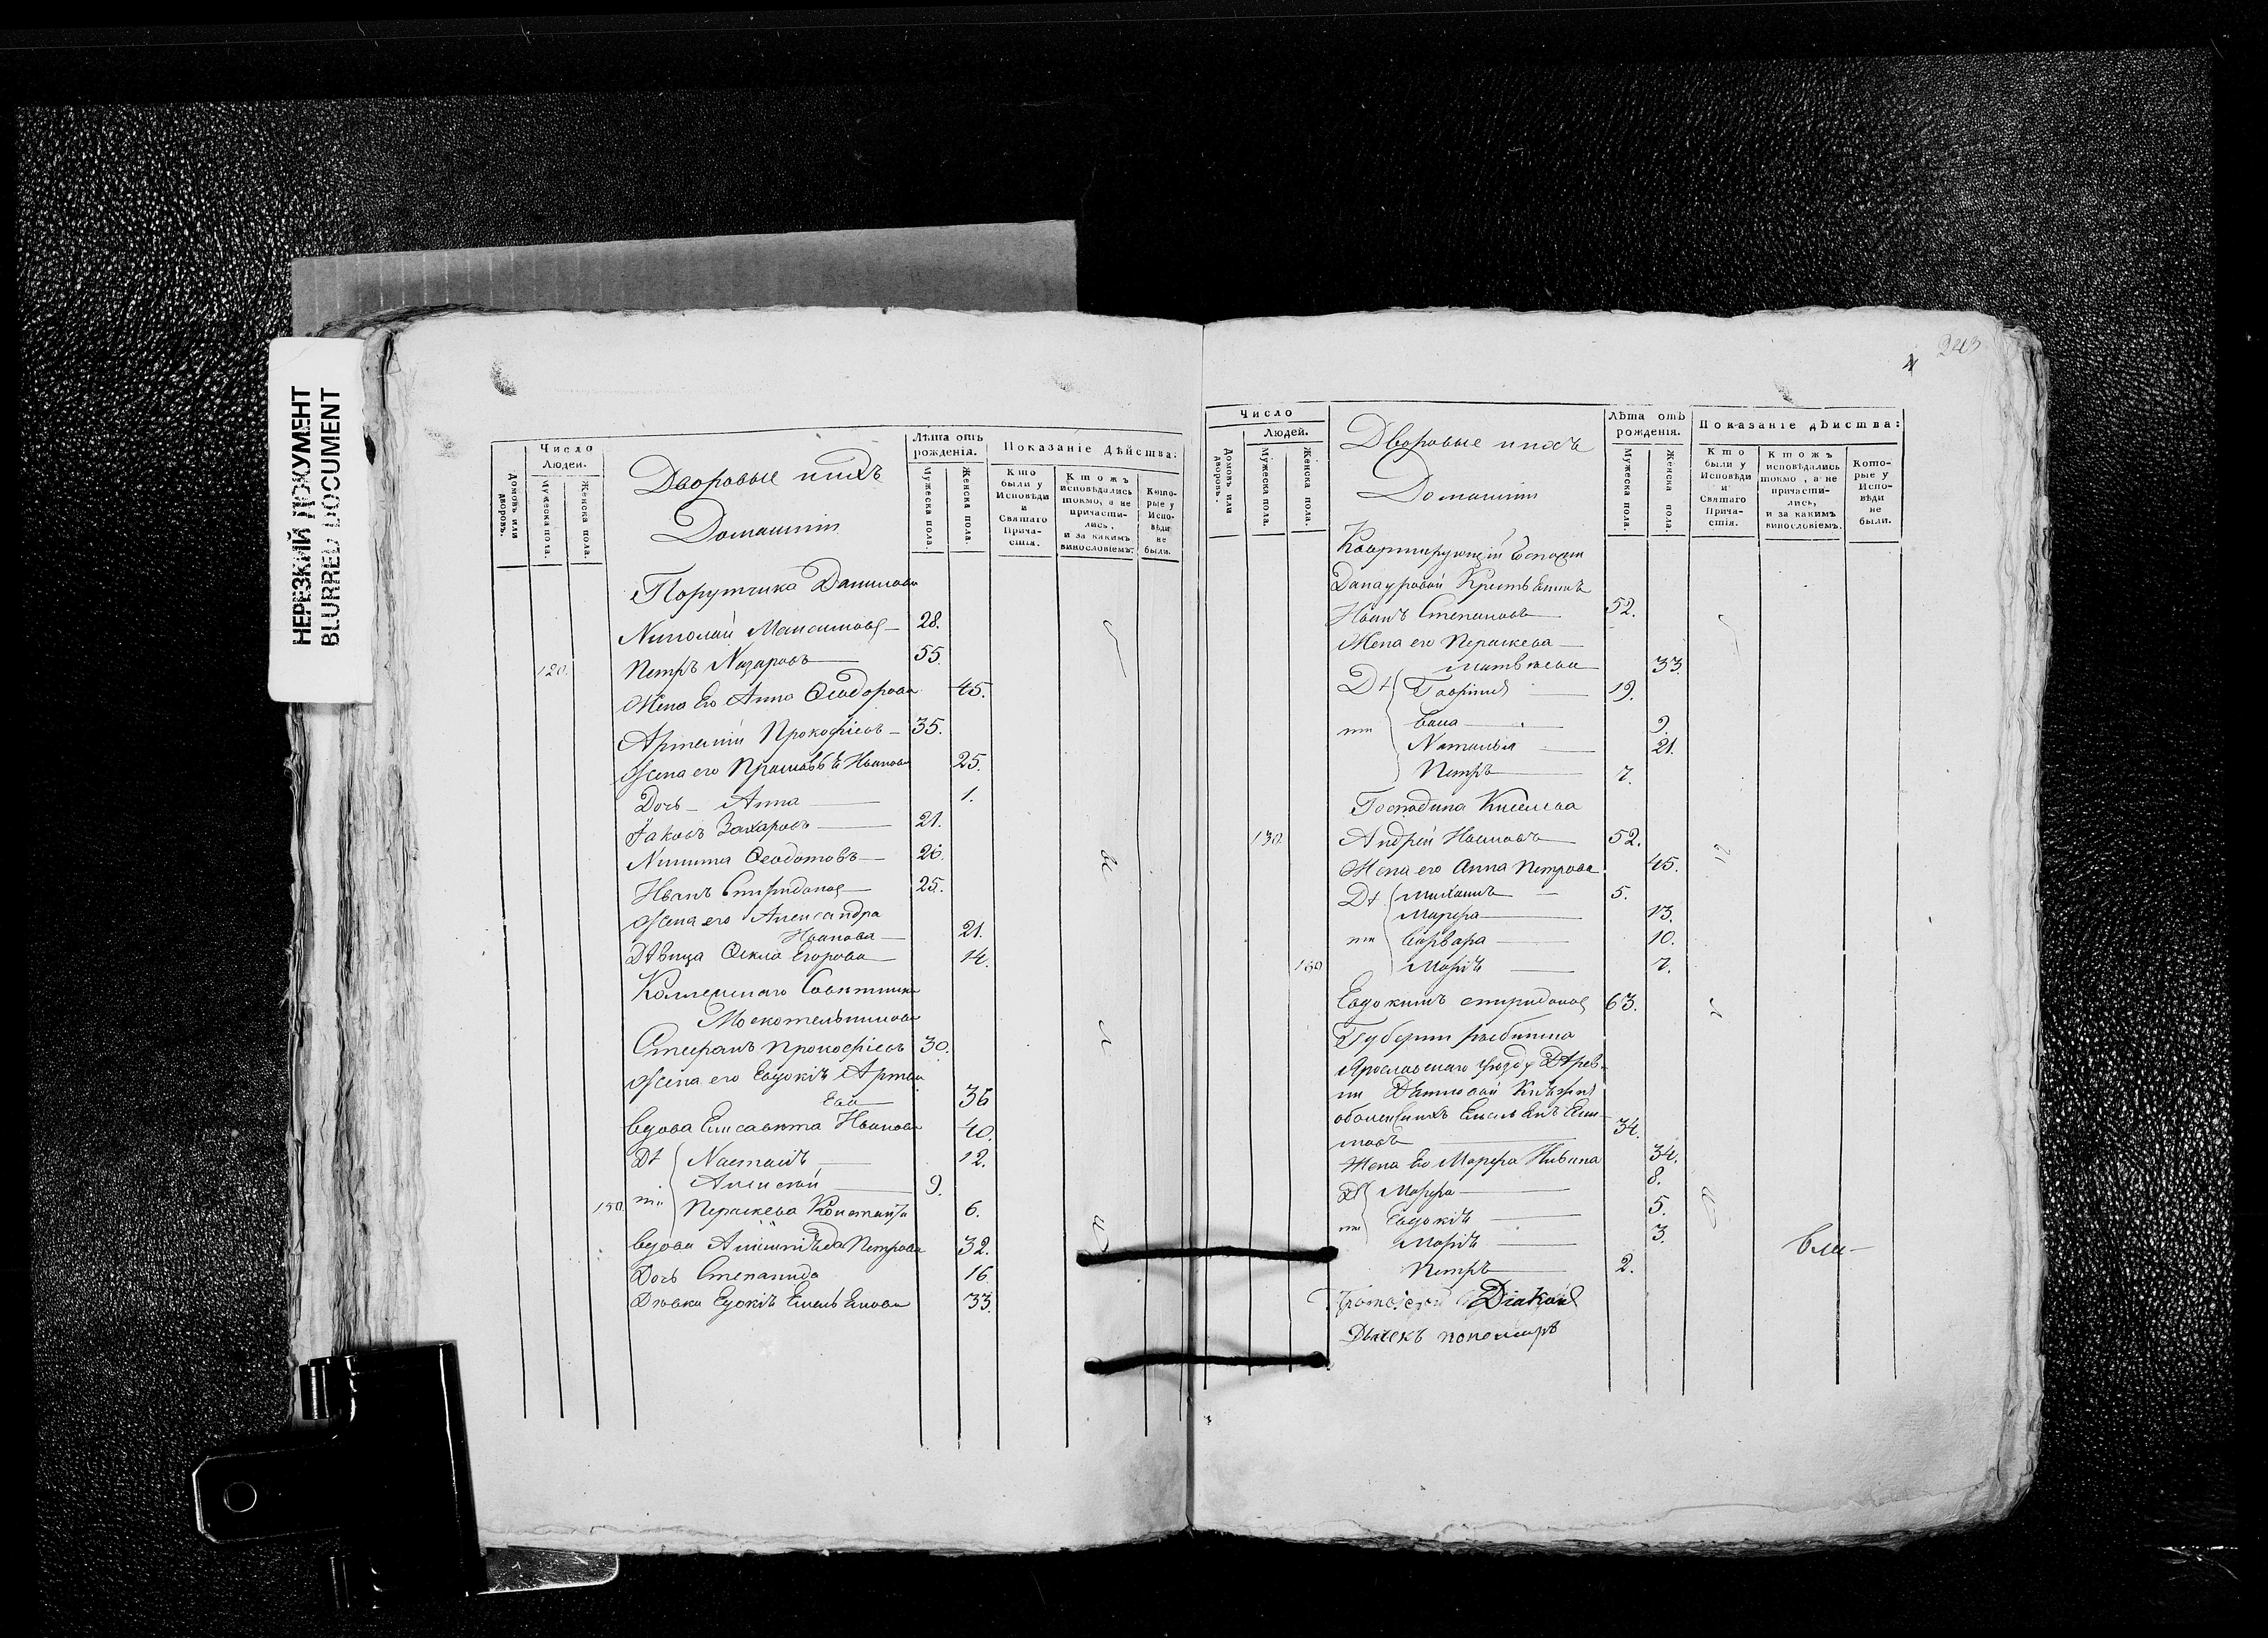 НЕРЕЗКИЙ ДОКУМЕНТ
BLURRED DOCUMENT
Число
Людей.
Домовъ или дворовъ.
Мужеска пола.
Женска пола.
Дворовые ихъ
Домашніи
Лѣта отъ рожденія.
Мужеска пола.
Женска пола.
Показаніе Дѣйства:
Кто были у Исповѣди и Святаго Причастія.
Ктожъ исповѣдались токмо, а не причастились, и за какимъ винословіемъ.
Которые у Исповѣди не были.
Порутчика Данилова
Николай Максимовъ 28.
120. Петръ Назаровъ 55.
Жена Его Анна Ѳеодорова 45.
Артемій Прокофіевъ 35.
Жена его Прасковья Иванова 25.
Дочь Анна 1.
Яковъ Захаровъ 21.
Никита Ѳеодотовъ 20.
Иванъ Спиридоновъ 25.
Жена его Александра
Иванова 21.
Дѣвица Ѳекла Егорова 14.
Коллежскаго Совѣтника
Москотельникова
Стефанъ Прокофіевъ 30.
Жена его Евдокія Артемьева 36
Вдова Елисавета Иванова 40.
Дѣти Настасія 12.
Алексѣй 9.
150. Параскева 6.
Вдова Петрова 32.
Дочь Степанида 16
Дѣвка Евдокія Емельянова 33.
243
Число
Людей.
Домовъ или дворовъ.
Мужеска пола.
Женска пола.
Дворовые ихъ
Домашніи
Лѣта отъ рожденія.
Мужеска пола.
Женска пола.
Показаніе дѣйства:
Кто были у Исповѣди и Святаго Причастія.
Ктожъ исповѣдались токмо, а не причастились, и за какимъ винословіемъ.
Которые у Исповѣди не были.
Квартирующій Госпожи
Крестьянинъ
Иванъ Степановъ 52.
Жена его Параскева
Матвѣева 33.
Дѣти Гавріилъ 19.
9.
Наталья 21.
Петръ 7.
Господина Киселева
130. Андрей Ивановъ 52.
Жена его Анна Петрова 45.
Дѣти Михаилъ 5.
Марфа 13.
Варвара 10.
160 Марія 7.
Евдокимъ Спиридоновъ 63.
Губерніи
Ярославскаго уѣзду Дерев-
ни Князей
Оболенскихъ Емельянъ
34.
Жена Его Марфа 34.
Дѣти Марфа 8.
Евдокія 5.
Марія 3.
Петръ 2.
были
Діаконъ
Дьячекъ пономарь